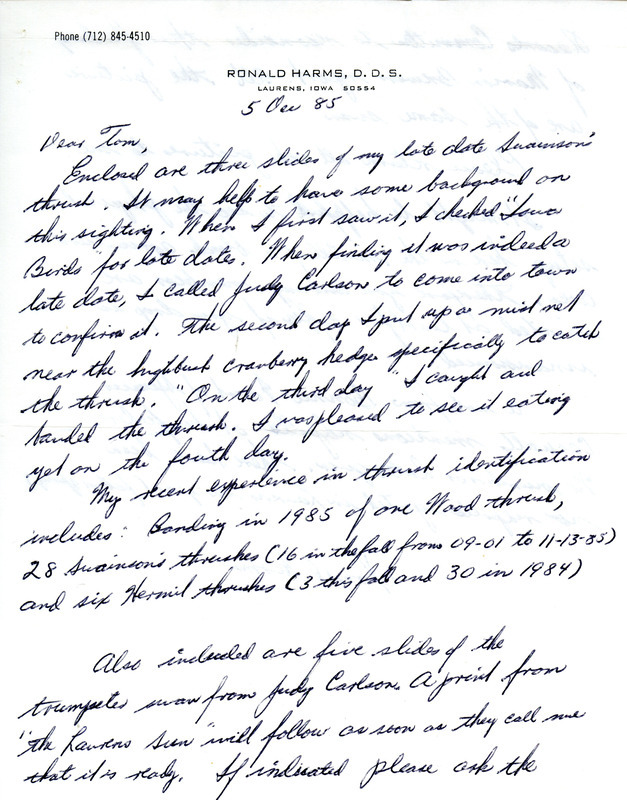 Phone (712) 845-4510
RONALD HARMS, D.D.S.
LAURENS, IOWA 50554
5 Dec 85
Dear Tom,
Enclosed are three slides of my late date Swainson's
thrush. It may help to have some background on
this sighting. When I first saw it, I checked "Iowa
Birds" for late dates. When finding it was indeed a
late date, I called Judy Carlson to come into town
to confirm it. The second day I put up a mist net
near the highbush cranberry hedge specifically to catch
the thrush. "On the third day" I caught and
banded the thrush. I was pleased to see it eating
yet on the fourth day.
My recent experience in thrush identification
includes: Banding in 1985 of one Wood thrush,
28 Swainson's thrushes (16 in the fall from 09-01 to 11-13-85)
and six Hermit thrushes (3 this fall and 30 in 1984)
Also included are five slides of the
trumpeter swan from Judy Carlson. A print from
"the Laurens Sun" will follow as soon as they call me
that it is ready. If indicated please ask the